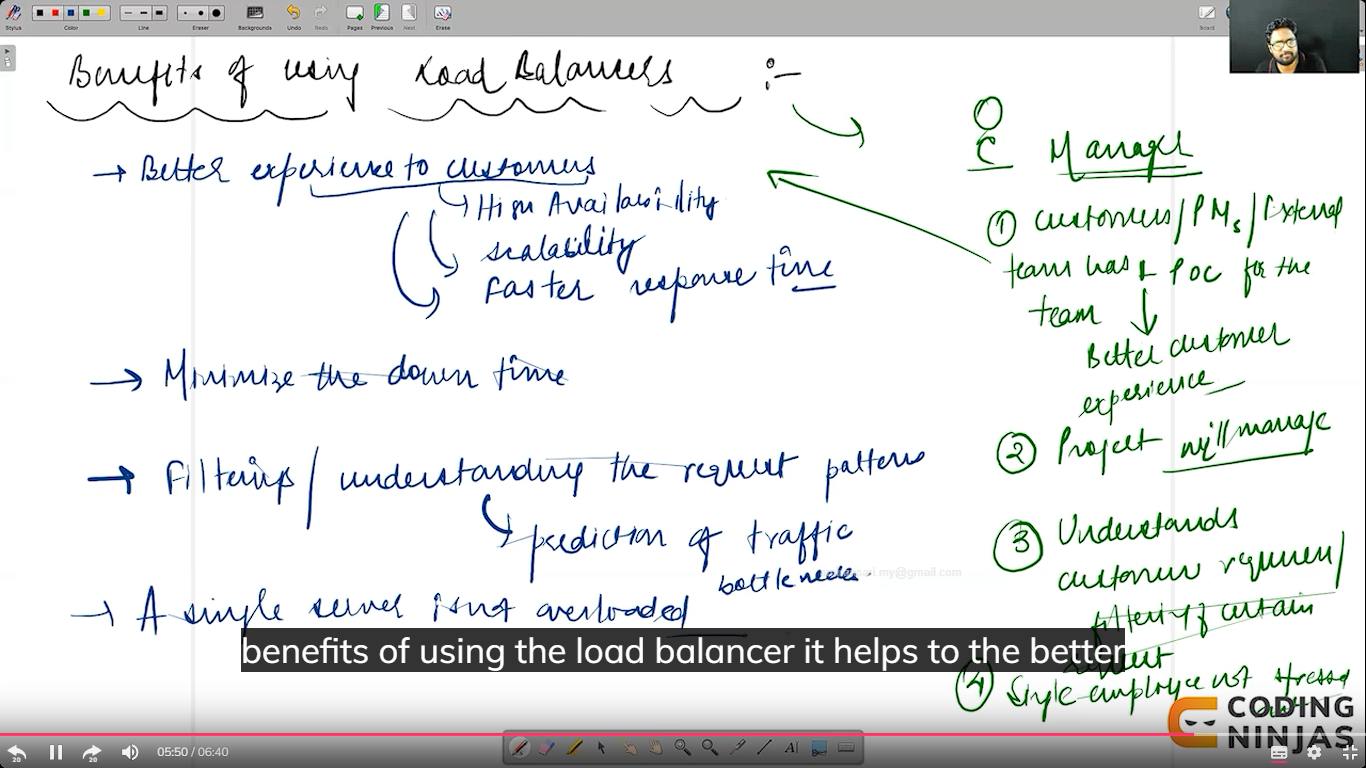 Stylus
Color
Line
Eraser
Backgrounds
Undo
Redo
Pages
Previous
Next
Erase
Board
Benefits of using Load Balancers :-
→ Better experience to customers
→ High Availability
scalability
Faster response time
→ Minimize the down time
→ Filtering / understanding the request patterns
prediction of traffic
bottlenecks.
→ A single server is not overloaded
Manager
① customers / PMs / External
team has 1 POC for the
team
Better customer
experience
② Project will manage
③ Understands
customer
filtering of certain
request
④ Single employee not stressed
benefits of using the load balancer it helps to the better
CODING
NINJAS
20
20
05:50 / 06:40